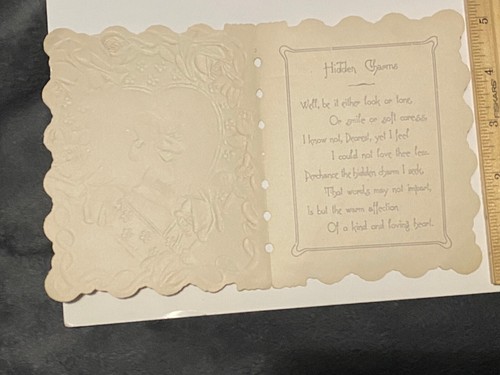 Hidden Charms
Well, be it either look or tone,
Or smile or soft caress
I know not, Dearest, yet I feel
I could not love thee less.
Perchance the hidden charm I seek,
That words may not impart,
Is but the warm affection
Of a kind and loving heart.
5
4
3
2